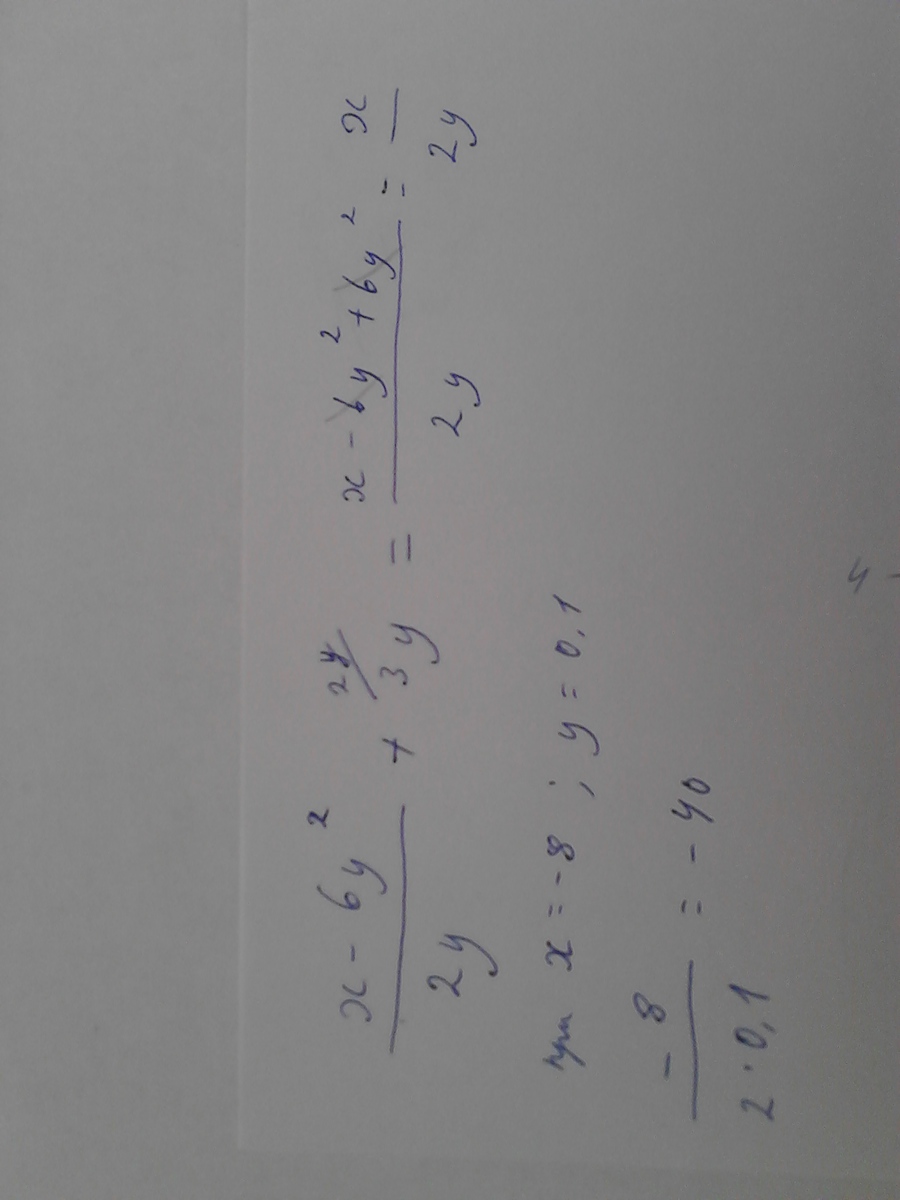 x - 6y² / 2y + 3y 2y/ = x - 6y² + 6y² / 2y = x / 2y
при x = -8 ; y = 0,1
- 8 / 2 · 0,1 = - 40